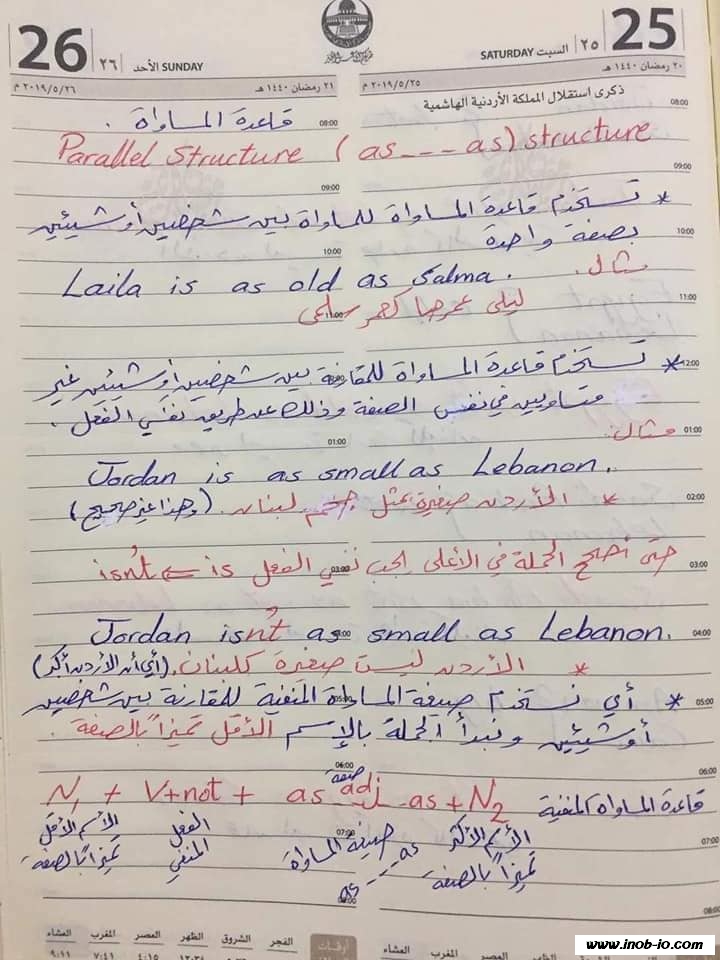 25
السبت ٢٥ SATURDAY
26
الأحد ٢٦ SUNDAY
٢٠ رمضان ١٤٤٠ هـ
٢٠١٩/٥/٢٥ م
٢١ رمضان ١٤٤٠ هـ
٢٠١٩/٥/٢٦ م
ذكرى استقلال المملكة الأردنية الهاشمية
08:00
08:00
قاعدة المساواة .
Parallel Structure ( as --- as) structure
09:00
09:00
* تستخدم قاعدة المساواة للمساواة بين شخصين أو شيئين
10:00
بصفة واحدة
10:00
مثال.
Laila is as old as Salma.
11:00
11:00
ليلى عمرها كعمر سلمى
12:00
* تستخدم قاعدة المساواة للمقارنة بين شخصين أو شيئين غير
متساويين في نفس الصفة وذلك عن طريق نفي الفعل .
01:00
01:00
مثال:
Jordan is as small as Lebanon.
02:00
* الأردن صغيرة بمثل حجم لبنان. (وهذا غير صحيح)
03:00
03:00
حتى نصحح الجملة في الأعلى يجب نفي الفعل is ⇐ isn't
04:00
Jordan isn't as small as Lebanon.
* الأردن ليست صغيرة كلبنان. (أي أن الأردن أكبر)
05:00
05:00
* أي نستخدم صيغة المساواة المنفية للمقارنة بين شخصين
أو شيئين ونبدأ الجملة بالإسم الأقل تميزاً بالصفة .
06:00
06:00
صفة
قاعدة المساواة المنفية N1 + V+not + as adj as + N2
07:00
07:00
الأسم الأقل تميزاً بالصفة
الفعل المنفي
صيغة المساواة as --- as
الأسم الأكثر تميزاً بالصفة
08:00
أوقات
الفجر الشروق الظهر العصر المغرب العشاء
٤:١٥ ٧:٤١ ٩:١١
المغرب العشاء
www.inob-io.com